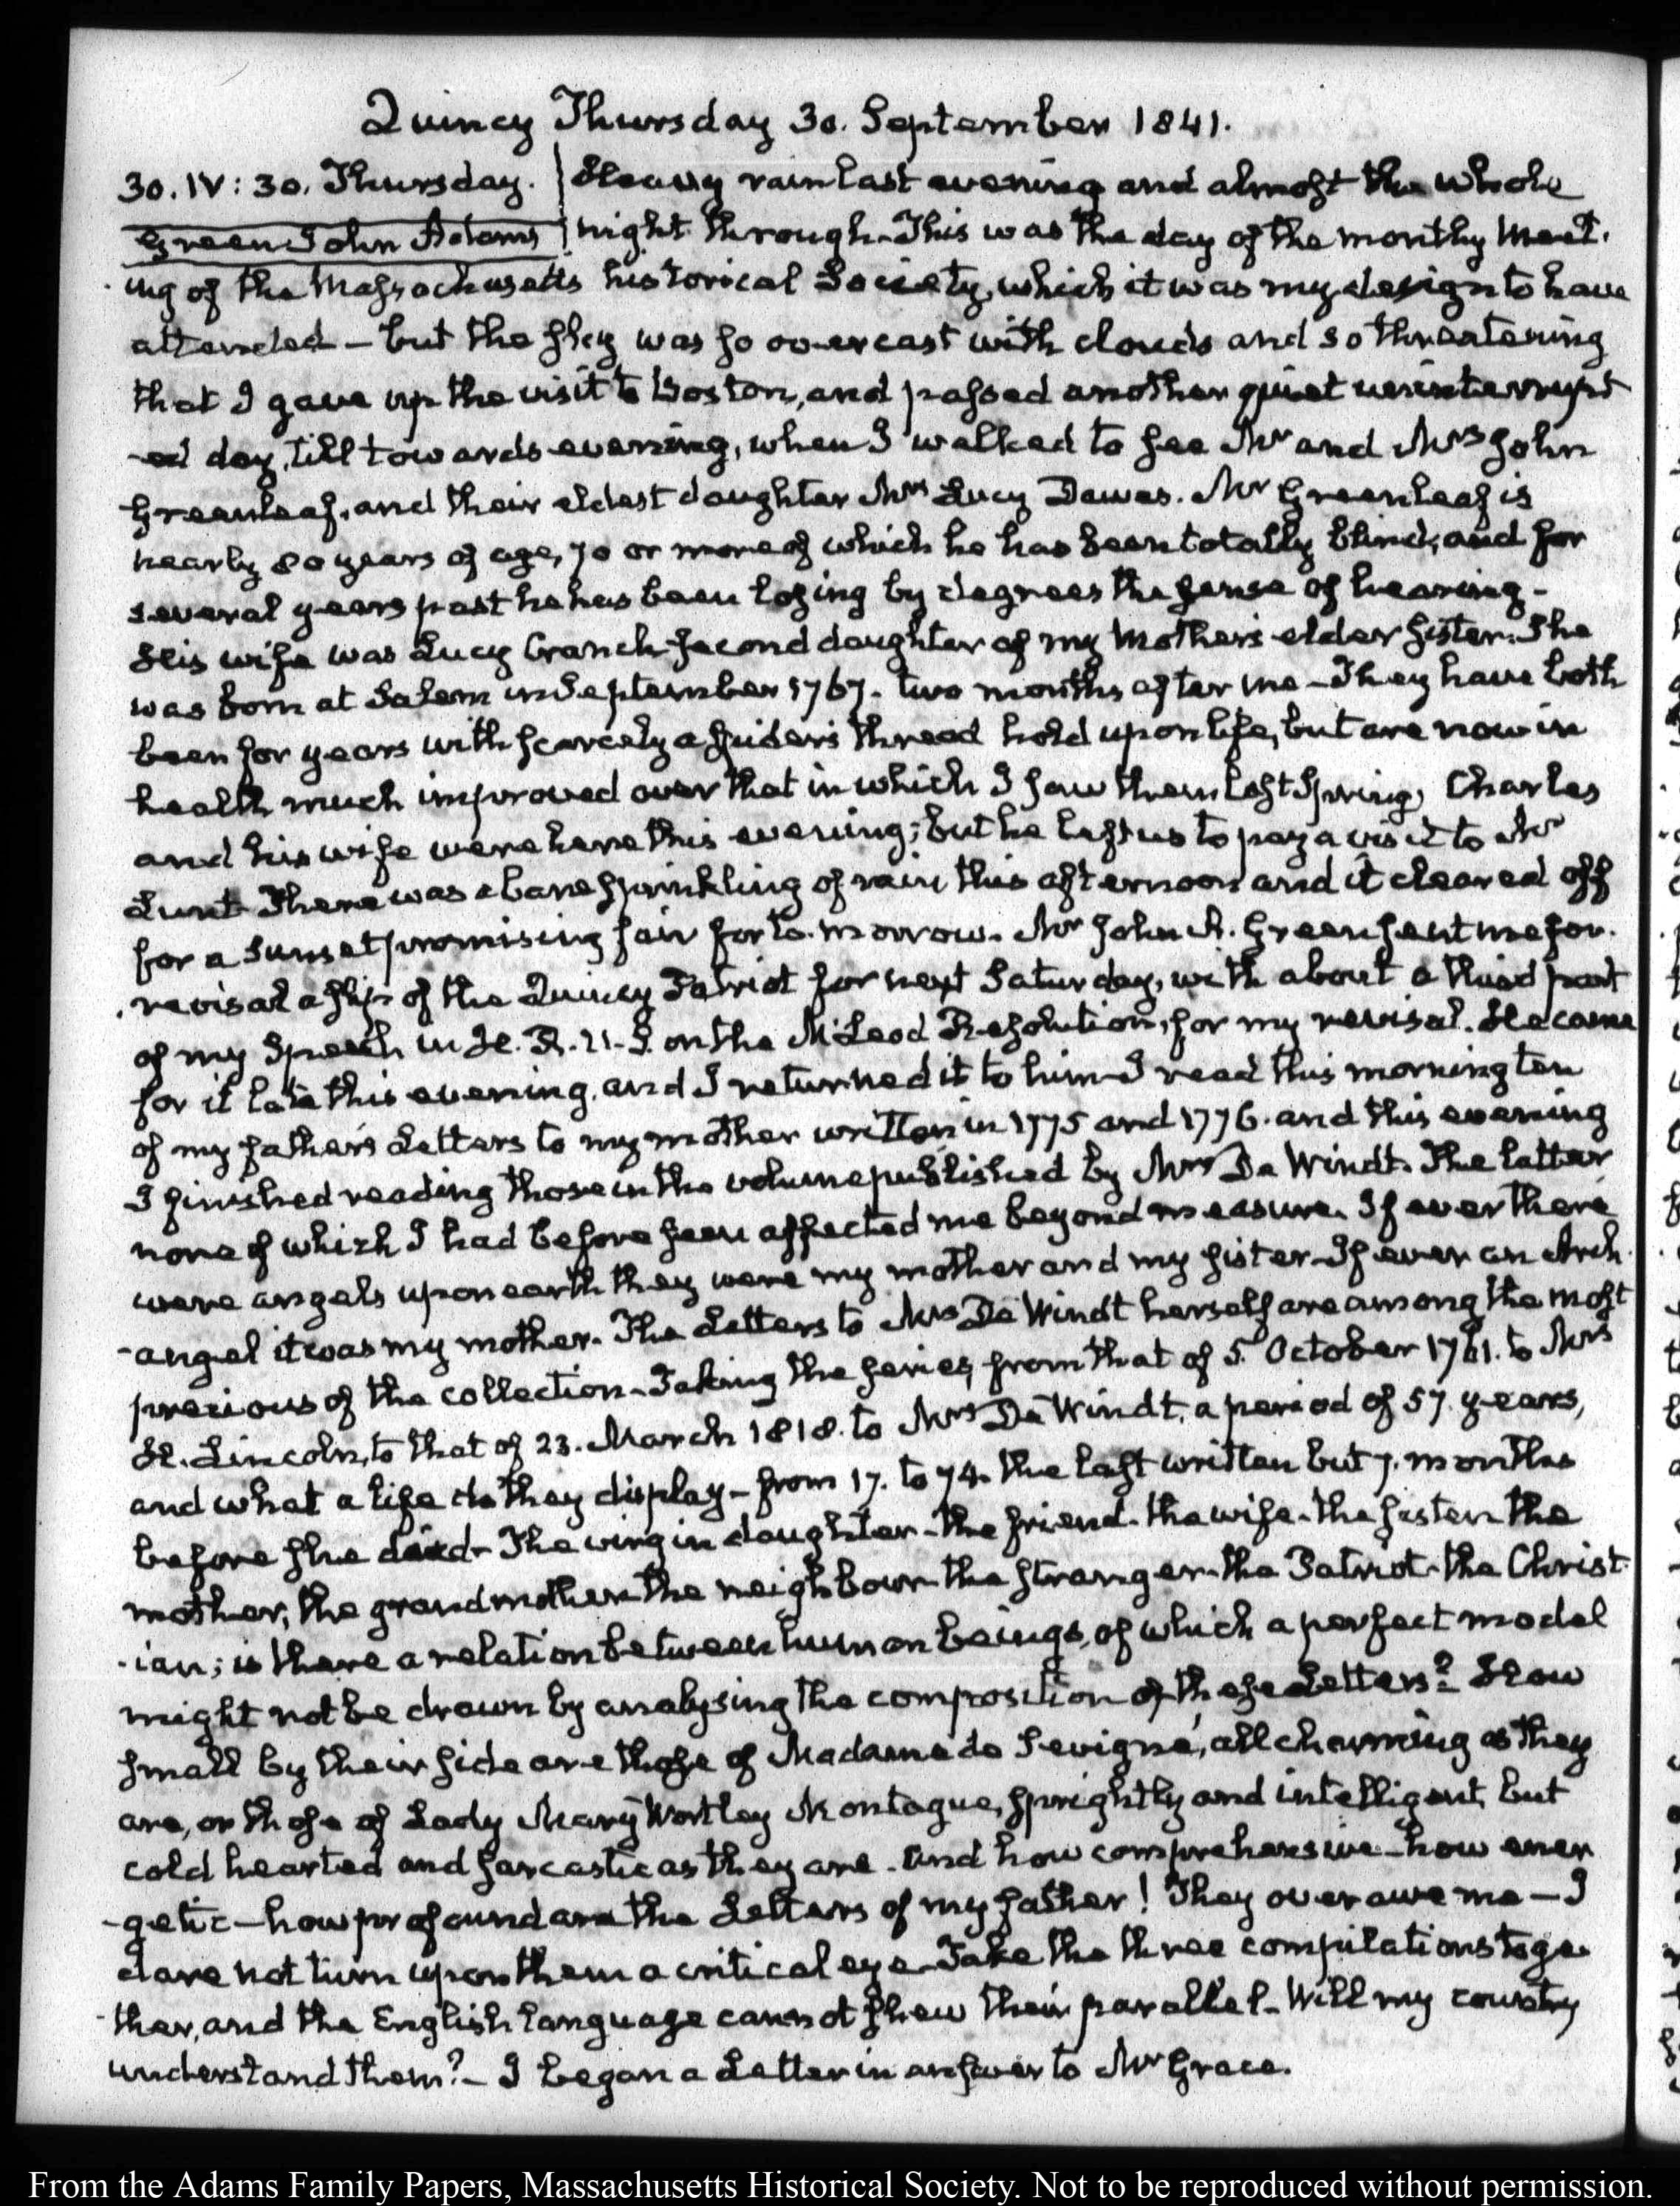 Quincy Thursday 30. September 1841.
30. IV: 30. Thursday. Heavy rain last evening and almost the whole
Green John Adams night through. This was the day of the monthly meet-
ing of the Massachusetts historical Society, which it was my design to have
attended – but the sky was so overcast with clouds and so threatening
that I gave up the visit to Boston, and passed another quiet uninterrupt
-ed day, till towards evening, when I walked to see Mr and Mrs John
Greenleaf, and their eldest daughter Mrs Lucy Dawes. Mr Greenleaf is
nearly 80 years of age, 70 or more of which he has been totally blind, and for
several years past he has been losing by degrees the sense of hearing –
His wife was Lucy Cranch second daughter of my Mother's elder sister. She
was born at Salem in September 1767. two months after me – They have both
been for years with scarcely a spider's thread hold upon life, but are now in
health much improved over that in which I saw them last Spring. Charles
and his wife were here this evening; but he left us to pay a visit to Mr
Lunt. There was a bare sprinkling of rain this afternoon and it cleared off
for a sunset promising fair for to-morrow. Mr John A. Green sent me for
revisal a slip of the Quincy Patriot for next Saturday, with about a third part
of my Speech in H. R. U. S. on the McLeod Resolution, for my revisal. He came
for it late this evening, and I returned it to him – I read this morning ten
of my father's Letters to my mother written in 1775 and 1776. and this evening
I finished reading those in the volume published by Mrs De Windt. The latter
none of which I had before seen affected me beyond measure. If ever there
were angels upon earth they were my mother and my sister – If ever an Arch-
-angel it was my mother. The Letters to Mrs De Windt herself are among the most
precious of the collection – Taking the series, from that of 5. October 1761. to Mrs
H. Lincoln, to that of 23. March 1818. to Mrs De Windt, a period of 57. years,
and what a life do they display – from 17. to 74. the last written but 7. months
before she died – The virgin daughter – the friend – the wife – the sister – the
mother, the grandmother – the neighbour – the stranger – the Patriot – the Christ-
-ian; is there a relation between human beings, of which a perfect model
might not be drawn by analysing the composition of these Letters? How
small by their side are those of Madame de Sevigné, all charming as they
are, or those of Lady Mary Wortley Montague, sprightly and intelligent, but
cold hearted and sarcastic as they are. And how comprehensive – how ener
-getic – how profound are the Letters of my father! They overawe me – I
dare not turn upon them a critical eye – Take the three compilations toge-
-ther, and the English language cannot shew their parallel – Will my country
understand them? – I began a Letter in answer to Mr Grace.
From the Adams Family Papers, Massachusetts Historical Society. Not to be reproduced without permission.